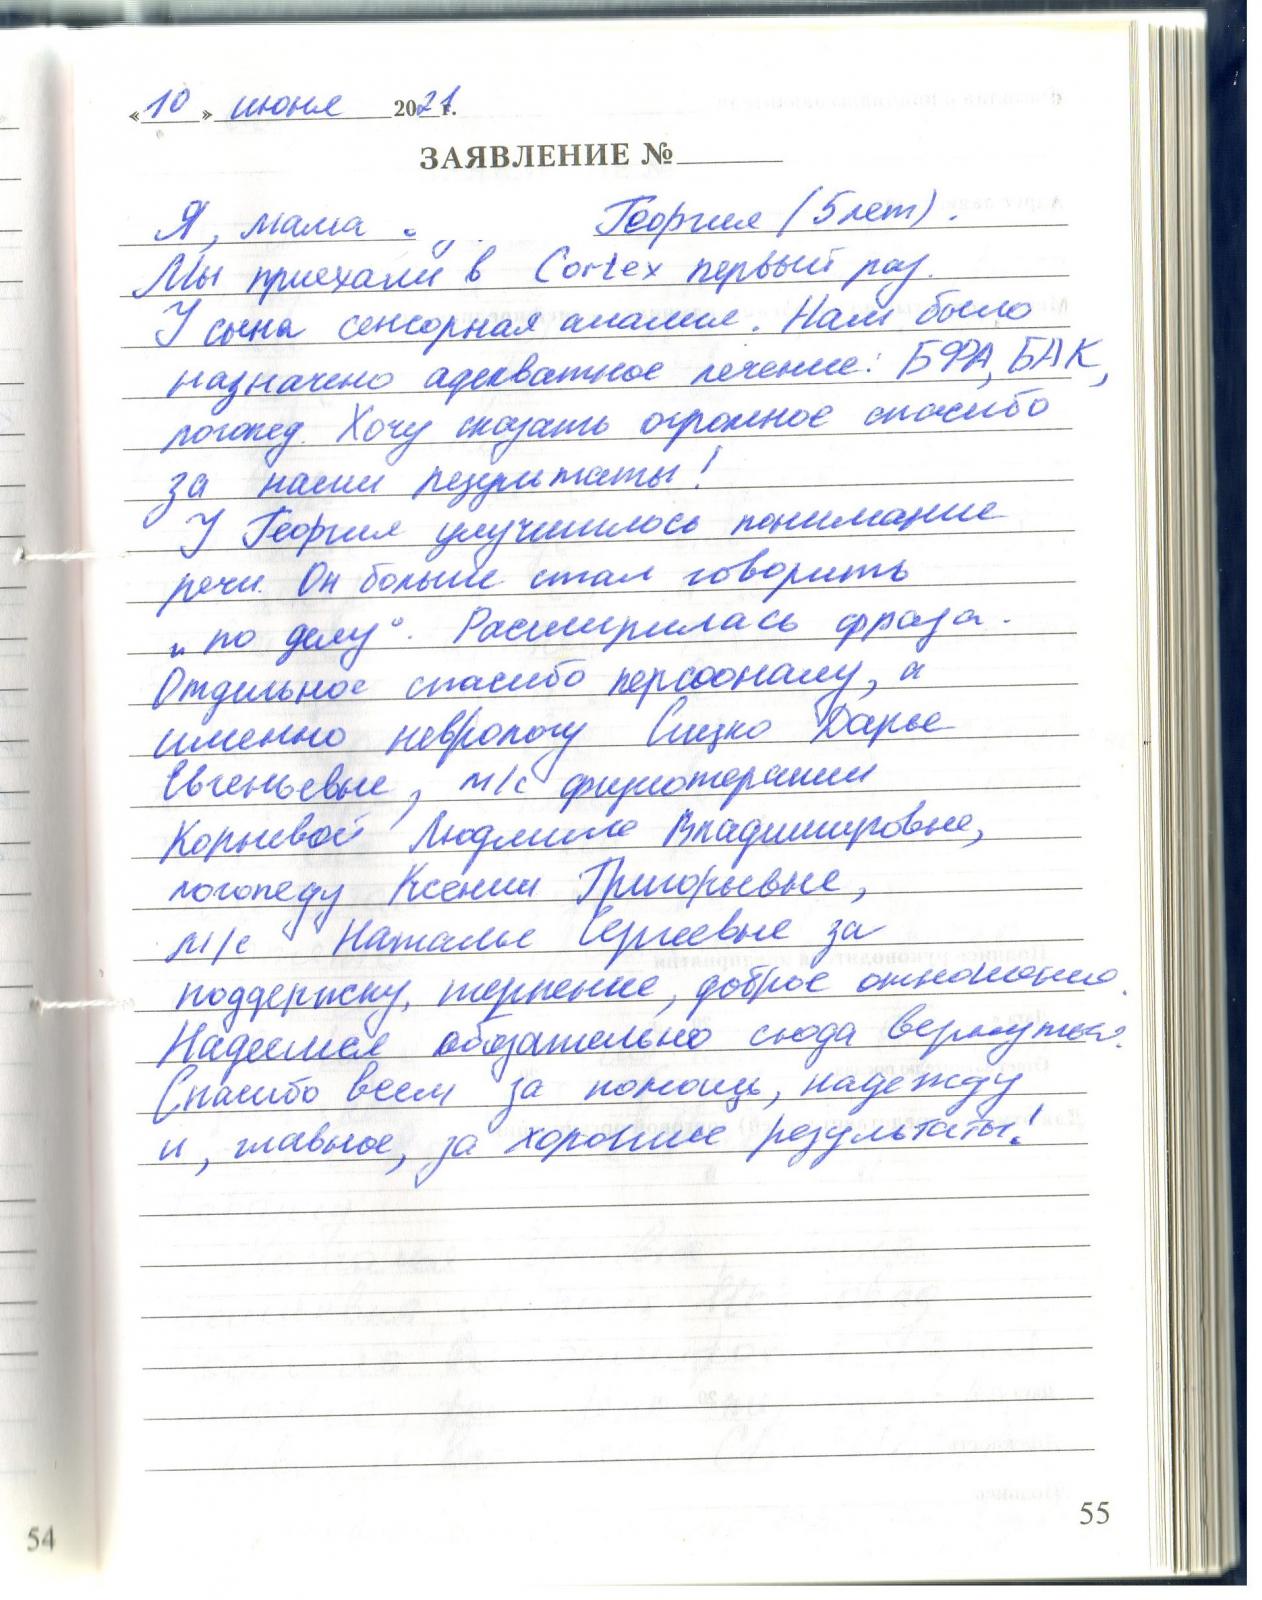 «10» июня 2021 г.
ЗАЯВЛЕНИЕ №
Я, мама Георгия (5 лет).
Мы приехали в Cortex первый раз.
У сына сенсорная алалия. Нам было
назначено адекватное лечение: БФА, БАК,
логопед. Хочу сказать огромное спасибо
за наши результаты!
У Георгия улучшилось понимание
речи. Он больше стал говорить
„по делу“. Расширилась фраза.
Отдельное спасибо персооналу, а
именно неврологу Сицко Дарье
Евгеньевне, м/с физиотерапии
Корневой Людмиле Владимировне,
логопеду Ксении Григорьевне,
м/с Наталье Сергеевне за
поддержку, терпение, доброе отношение.
Надеемся обязательно сюда вернуться.
Спасибо всем за помощь, надежду
и, главное, за хорошие результаты!
54
55